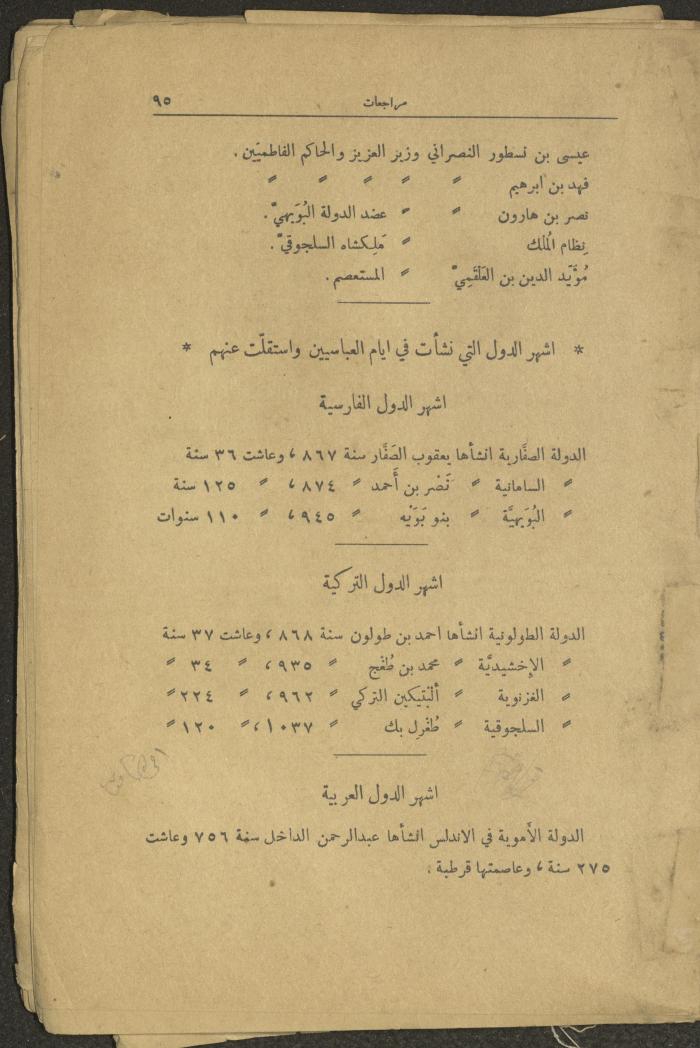 مراجعات ٩٥
عيسى بن نسطور النصراني وزير العزيز والحاكم الفاطميّين .
فهد بن ابرهيم 〃 〃 〃 〃 〃
نصر بن هارون 〃 〃 عضد الدولة البُوَيهيّ .
نِظام المُلك 〃 مَلِكشاه السلجوقيّ .
مُؤَيّد الدين بن العَلْقَمِيّ 〃 المستعصم .
* اشهر الدول التي نشأت في ايام العباسيين واستقلّت عنهم *
اشهر الدول الفارسية
الدولة الصفَّارية انشأها يعقوب الصَفَّار سنة ٨٦٧ ، وعاشت ٣٦ سنة
〃 السامانية 〃 نَصْر بن أَحمد 〃 ٨٧٤ ، 〃 ١٢٥ سنة
〃 البُوَيهيَّة 〃 بنو بَوَيْه 〃 ٩٤٥ ، 〃 ١١٠ سنوات
اشهر الدول التركية
الدولة الطولونية انشأها احمد بن طولون سنة ٨٦٨ ، وعاشت ٣٧ سنة
〃 الإِخشيديَّة 〃 محمد بن طُغْج 〃 ٩٣٥ ، 〃 ٣٤ 〃
〃 الغزنوية 〃 ألبْتيكين التركي 〃 ٩٦٢ ، 〃 ٢٢٤ 〃
〃 السلجوقية 〃 طُغرِل بك 〃 ١٠٣٧ ، 〃 ١٢٠ 〃
اشهر الدول العربية
الدولة الأُموية في الاندلس انشأها عبدالرحمن الداخل سنة ٧٥٦ وعاشت
٢٧٥ سنة ، وعاصمتها قرطبة .